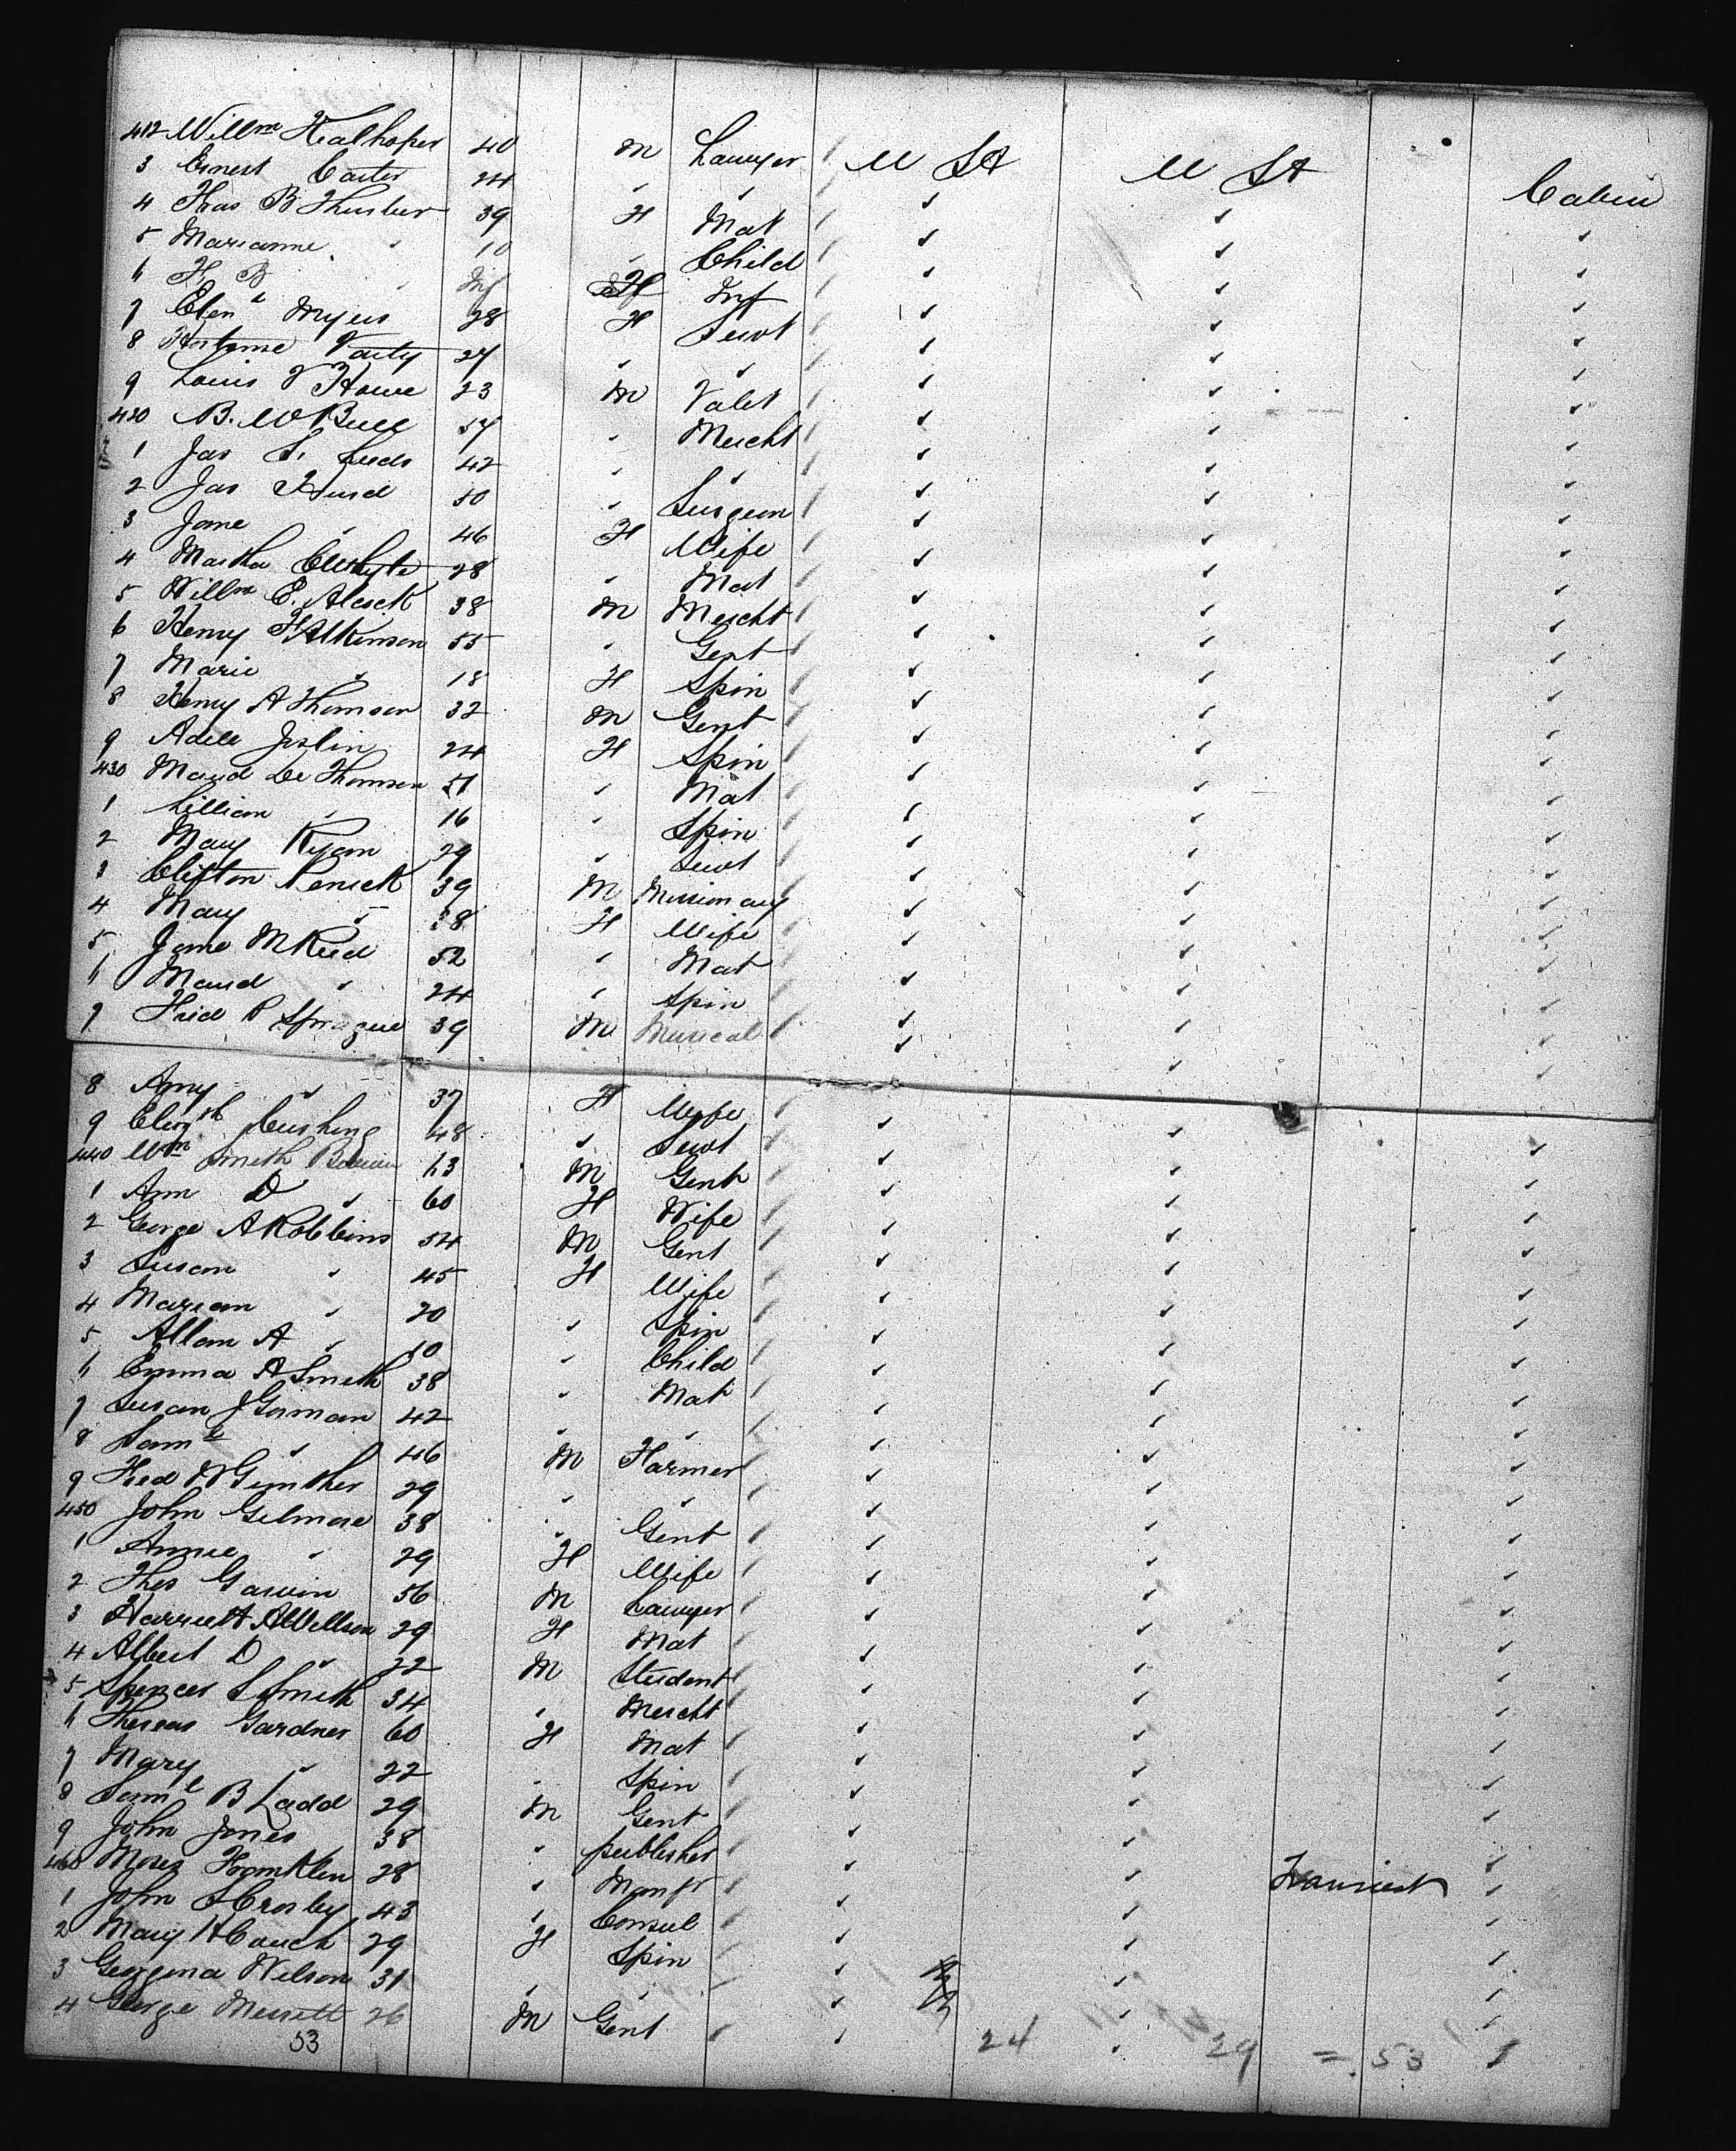 412 Willm Healhofer 40 M Lawyer U St U St Cabin
3 Ernest Carter 24 " "
4 Thas B Thurber 39 F Mat
5 Marianne " 10 " Child
6 H B " Inf F Inf
7 Elen Myers 28 F Servt
8 Hortense Varty 27 " "
9 Louis V Howe 23 M Valet
420 B. W Bull 57 " Mercht
1 Jas S. Leeds 42 " "
2 Jas Hurd 50 " Surgeon
3 Jane " 46 F Wife
4 Martha C Whyte 28 " Mat
5 Willm E. Alcock 38 M Mercht
6 Henry F Atkinson 55 " Gent
7 Marie " 18 F Spin
8 Henry A Thomson 32 M Gent
9 Adele Joslin 24 F Spin
430 Maud De Thomson 51 " Mat
1 Lillian " 16 " Spin
2 Mary Ryan 29 " Servt
3 Clifton Penick 39 M Missionary
4 Mary " 38 F Wife
5 Jane M Reed 52 " Mat
6 Maud " 24 " Spin
7 Fred P Sprague 39 M Musical
8 Amy " 37 F Wife
9 Elizth Cushing 48 " Servt
440 Wm Smith 63 M Gent
1 Ann D " 60 F Wife
2 George A Robbins 54 M Gent
3 Susan " 45 F Wife
4 Marian " 20 " Spin
5 Allan A " 10 " Child
6 Emma A Smith 38 " Mat
7 Susan J Gorman 42 " "
8 Saml " 46 M Farmer
9 Fred W Gunther 29 " "
450 John Gilmore 38 " Gent
1 Annie " 29 F Wife
2 Thos Garvin 56 M Lawyer
3 Harriett A Willson 29 F Mat
4 Albert D " 22 M Student
5 Spencer S Smith 34 " Mercht
6 Theresa Gardner 60 F Mat
7 Mary " 22 " Spin
8 Saml B Ladd 29 M Gent
9 John Jones 38 " publisher
460 Moses Franklin 28 " Manfr Tourist
1 John S Crosby 43 " Consul
2 Mary H Couch 29 F Spin
3 Georgina Wilson 31 " "
4 George Merrett 26 M Gent
53 24 29 = 53